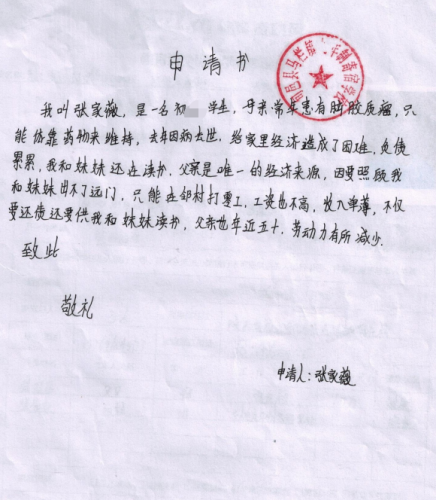 申请书
我叫张家薇，是一名初 学生，母亲常年患有脑胶质瘤，只
能依靠药物来维持，去年因病去世，给家里经济造成了困难，负债
累累，我和妹妹还在读书，父亲是唯一的经济来源，因要照顾我
和妹妹出不了远门，只能在邻村打零工，工资也不高，收入单薄，不仅
要还债还要供我和妹妹读书，父亲也年近五十，劳动力有所减少.
致此
敬礼
申请人：张家薇